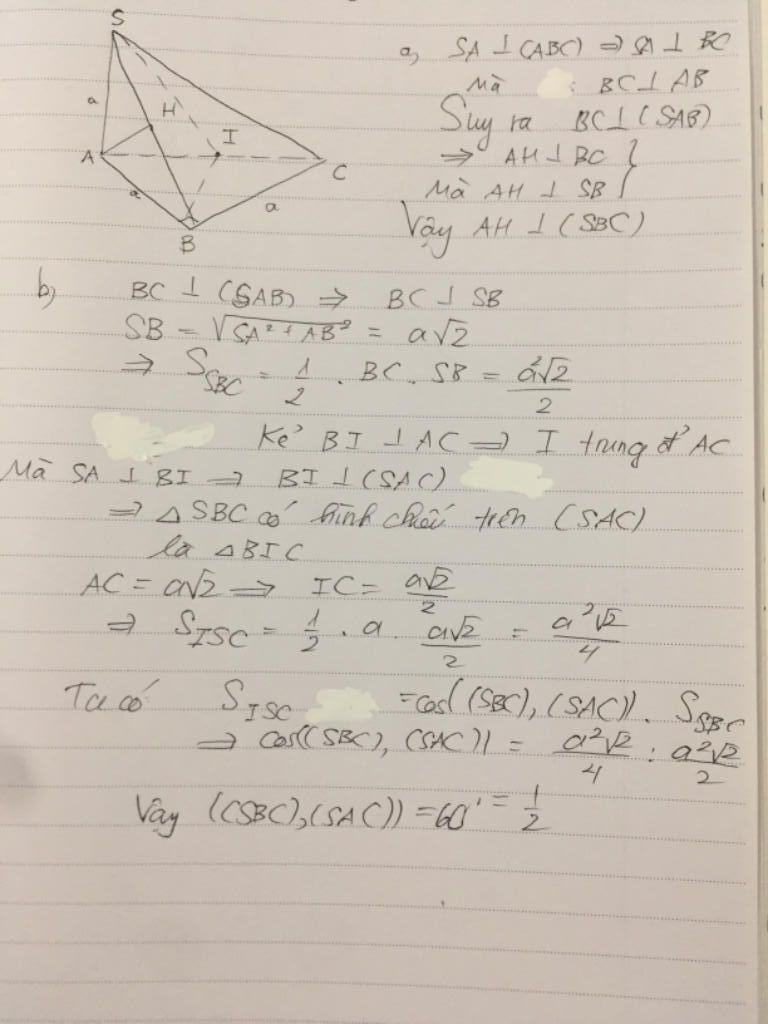 S
a
H
I
A
C
a
a
B
a, SA ⊥ (ABC) ⇒ SA ⊥ BC
Mà : BC ⊥ AB
Suy ra BC ⊥ (SAB)
⇒ AH ⊥ BC }
Mà AH ⊥ SB }
Vậy AH ⊥ (SBC)
b, BC ⊥ (SAB) ⇒ BC ⊥ SB
SB = √(SA² + AB²) = a√2
⇒ S_SBC = 1/2 . BC . SB = a²√2/2
Kẻ BI ⊥ AC ⇒ I trung đ' AC
Mà SA ⊥ BI ⇒ BI ⊥ (SAC)
⇒ △SBC có hình chiếu trên (SAC)
là △BIC
AC = a√2 ⇒ IC = a√2/2
⇒ S_ISC = 1/2 . a . a√2/2 = a²√2/4
Ta có S_ISC = cos((SBC), (SAC)) . S_SBC
⇒ cos((SBC), (SAC)) = a²√2/4 : a²√2/2
Vậy ((SBC), (SAC)) = 60° = 1/2